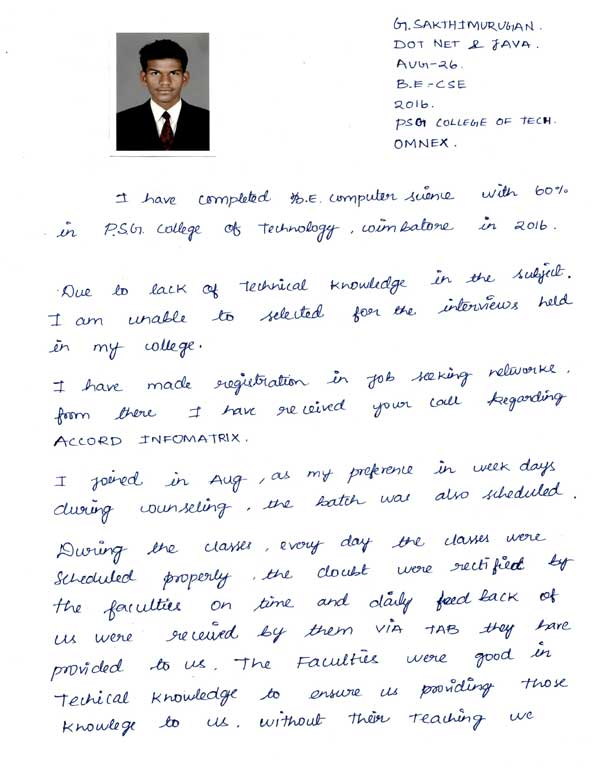 G. SAKTHIMURUGAN.
DOT NET & JAVA.
AUG-26.
B.E-CSE
2016.
PSG COLLEGE OF TECH.
OMNEX.
I have completed B.E. computer science with 60%
in P.S.G. College of Technology, coimbatore in 2016.
Due to lack of Technical knowledge in the subject.
I am unable to selected for the interviews held
in my college.
I have made registration in job seeking networke.
from there I have received your call Regarding
ACCORD INFOMATRIX.
I joined in Aug, as my preference in week days
during counseling, the batch was also scheduled.
During the classes, every day the classes were
scheduled properly, the doubt were rectified by
the faculties on time and daily feed back of
us were received by them VIA TAB they have
provided to us. The Faculties were good in
Techical knowledge to ensure us providing those
knowlege to us. without their Teaching we